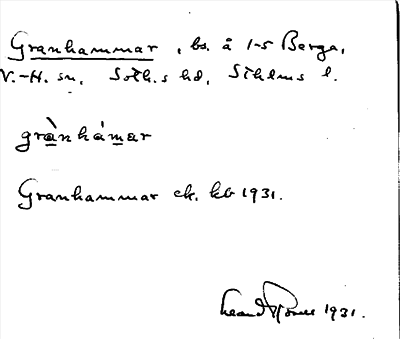 Granhammar, bs. å 1-5 Berga,
V.-H. sn, Soth.s hd, Sthlms l.
grànhámar
Granhammar ek. kb 1931.
1931.